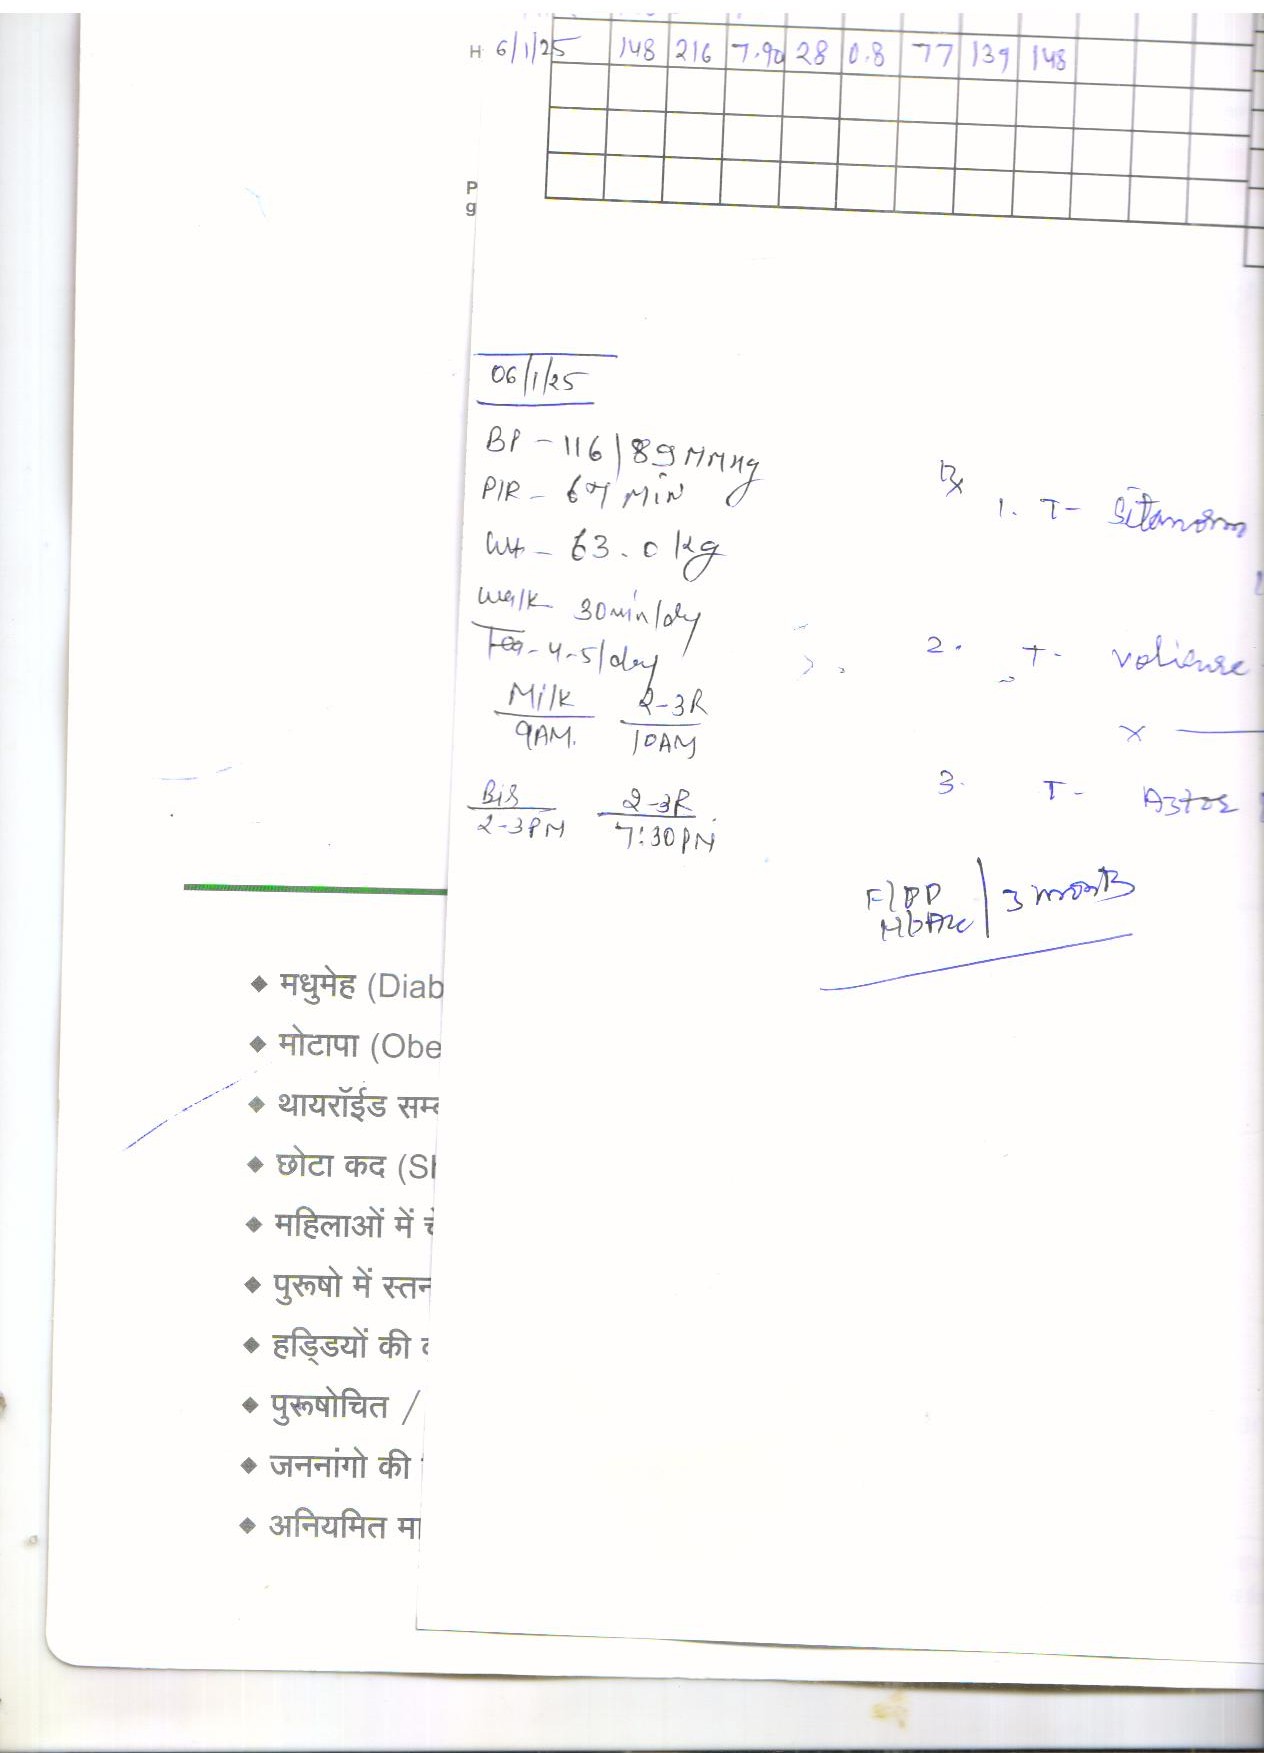 H 6/1/25 148 216 7.90 28 0.8 77 139 148
P
g
06/1/25
BP - 116/89 MMHg
P/R - 67 Min
Wt - 63.0 kg
Walk 30min/dy
Tea - 4-5/day
Milk 2-3R
9AM. 10AM
Bis 2-3R
2-3PM 7:30PM
Rx
1. T- Sitanorm
2. T-
x
3. T-
F/PP
HbA1c / 3 month
◆ मधुमेह (Diab
◆ मोटापा (Obe
◆ थायरॉईड सम्ब
◆ छोटा कद (Sh
◆ महिलाओं में चे
◆ पुरूषो में स्तन
◆ हड्डियों की
◆ पुरूषोचित /
◆ जननांगो की
◆ अनियमित मा